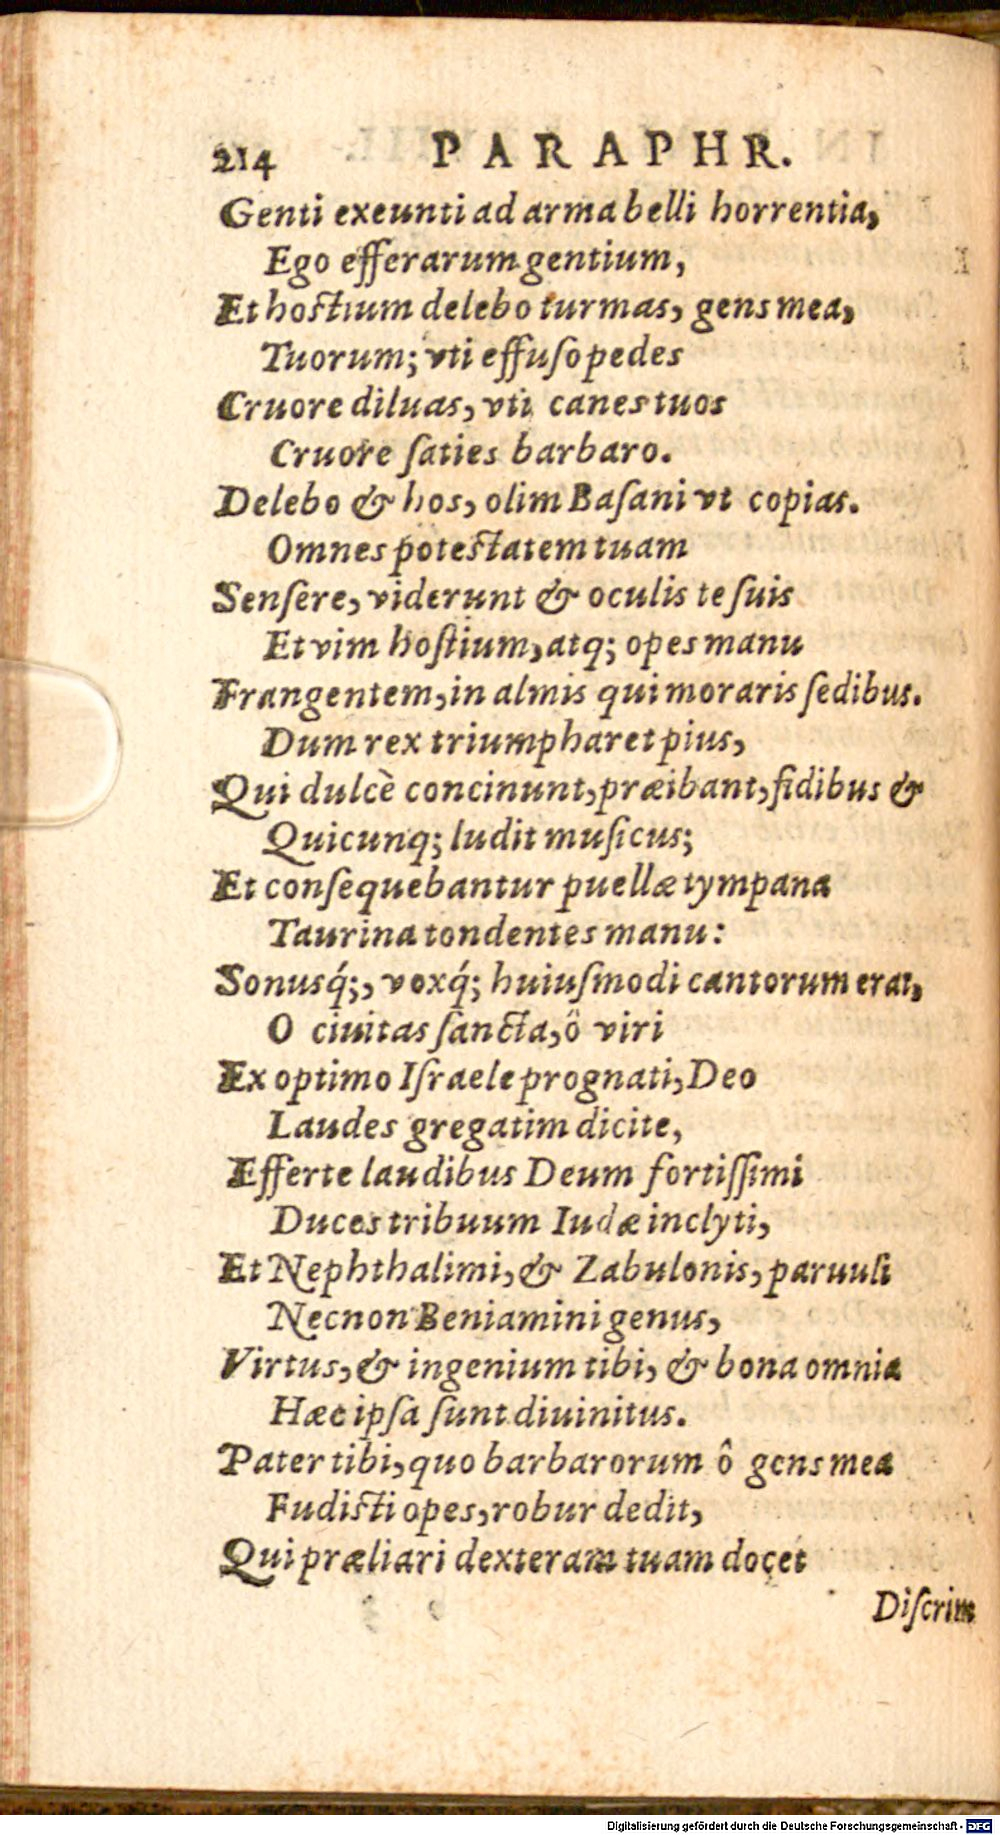 214 PARAPHR.
Genti exeunti ad arma belli horrentia,
Ego efferarum gentium,
Et hostium delebo turmas, gens mea,
Tuorum; vti effuso pedes
Cruore diluas, vti canes tuos
Cruore ſaties barbaro.
Delebo & hos, olim Baſani vt copias.
Omnes potestatem tuam
Senſere, viderunt & oculis te ſuis
Et vim hoſtium, atq; opes manu
Frangentem, in almis qui moraris ſedibus.
Dum rex triumpharet pius,
Qui dulcè concinunt, præibant, fidibus &
Quicunq; ludit muſicus;
Et conſequebantur puellæ tympana
Taurina tondentes manu:
Sonusq́;, voxq́; huiuſmodi cantorum erat,
O ciuitas ſancta, ô viri
Ex optimo Iſraele prognati, Deo
Laudes gregatim dicite,
Efferte laudibus Deum fortiſſimi
Duces tribuum Iudæ inclyti,
Et Nephthalimi, & Zabulonis, paruuli
Necnon Beniamini genus,
Virtus, & ingenium tibi, & bona omnia
Hæc ipſa ſunt diuinitus.
Pater tibi, quo barbarorum ô gens mea
Fudisti opes, robur dedit,
Qui præliari dexteram tuam docet
Diſcrim
Digitalisierung gefördert durch die Deutsche Forschungsgemeinschaft - DFG